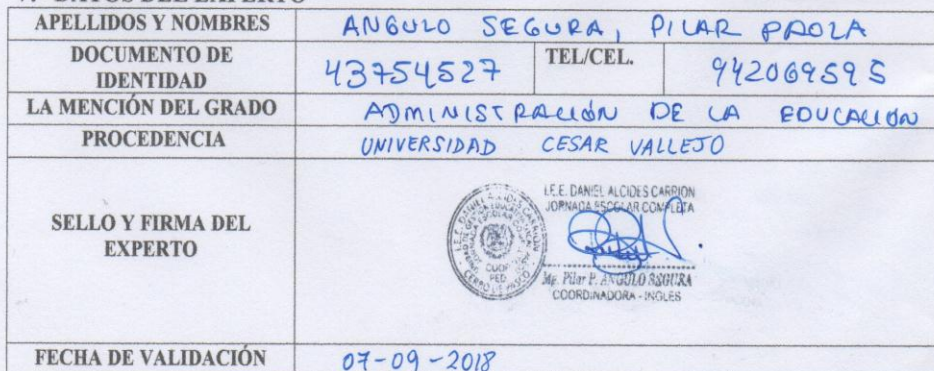 V. DATOS DEL EXPERTO
APELLIDOS Y NOMBRES ANGULO SEGURA, PILAR PAOLA
DOCUMENTO DE IDENTIDAD 43754527 TEL/CEL. 942069595
LA MENCIÓN DEL GRADO ADMINISTRACIÓN DE LA EDUCACIÓN
PROCEDENCIA UNIVERSIDAD CESAR VALLEJO
SELLO Y FIRMA DEL EXPERTO
I.E.E. DANIEL ALCIDES CARRION
JORNADA ESCOLAR COMPLETA
Mg. Pilar P. ANGULO SEGURA
COORDINADORA - INGLES
I.E.E. DANIEL A. CIDES CARRION
JORNADA ESCOLAR
CERRO DE PASCO
FECHA DE VALIDACIÓN 07-09-2018